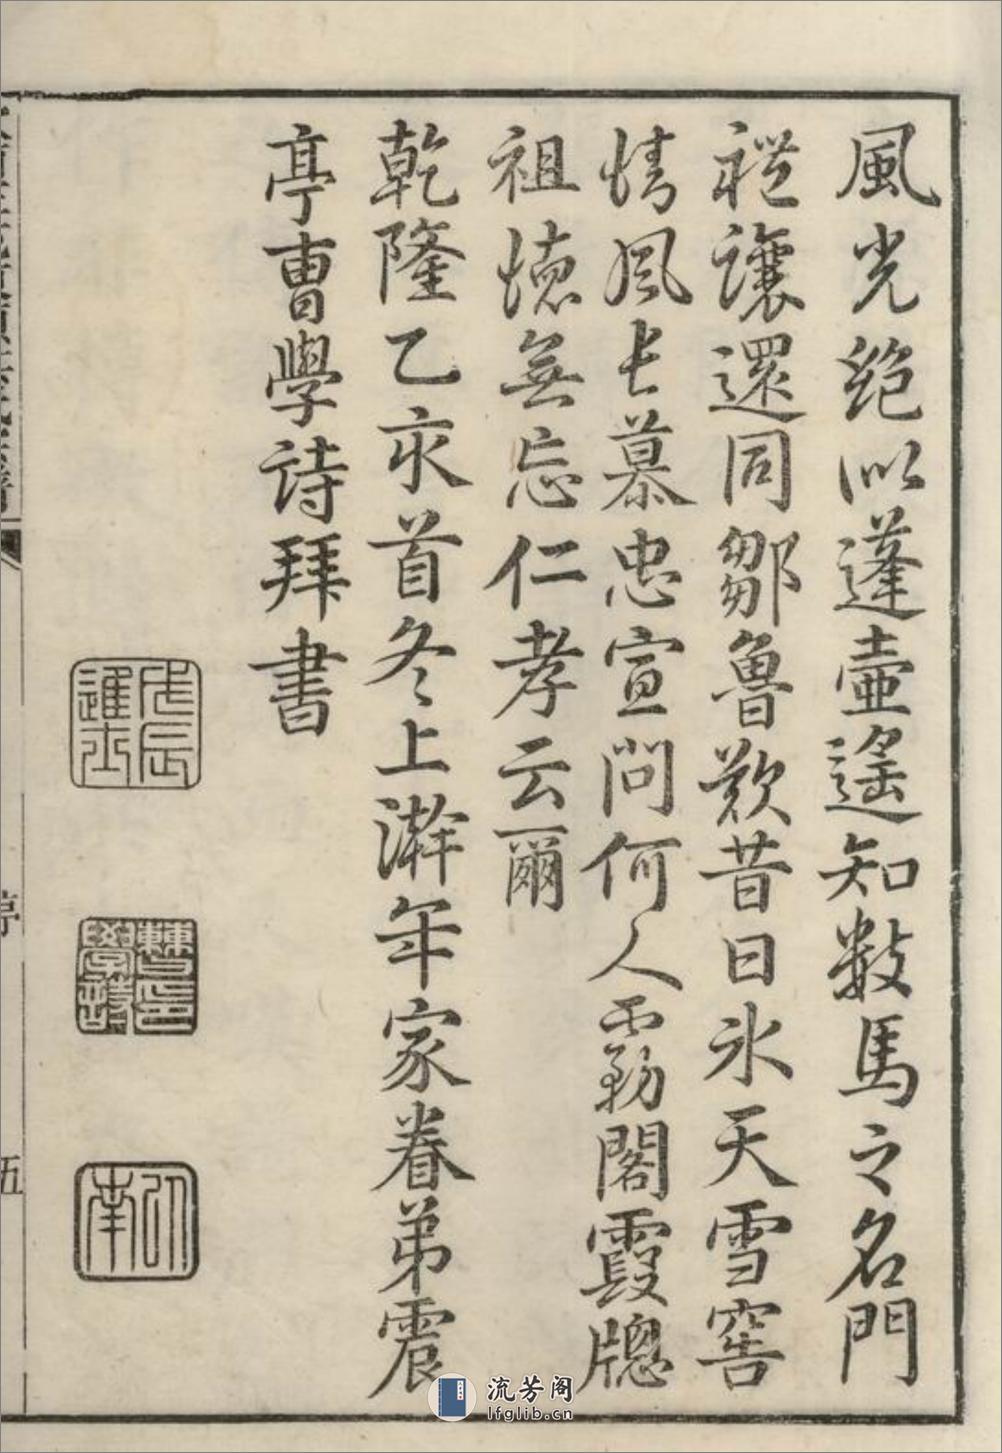 風光絶似蓬壺遥知數馬之名門
禮讓還同鄒魯歎昔日氷天雪窖
情風长慕忠宣問何人霧閣霞牎
祖徳無忘仁孝云爾
乾隆乙亥首冬上澣年家眷弟震
亭曹學詩拜書
戊辰進士
曹印學詩
以南
亭
伍
流芳阁
lfglib.cn